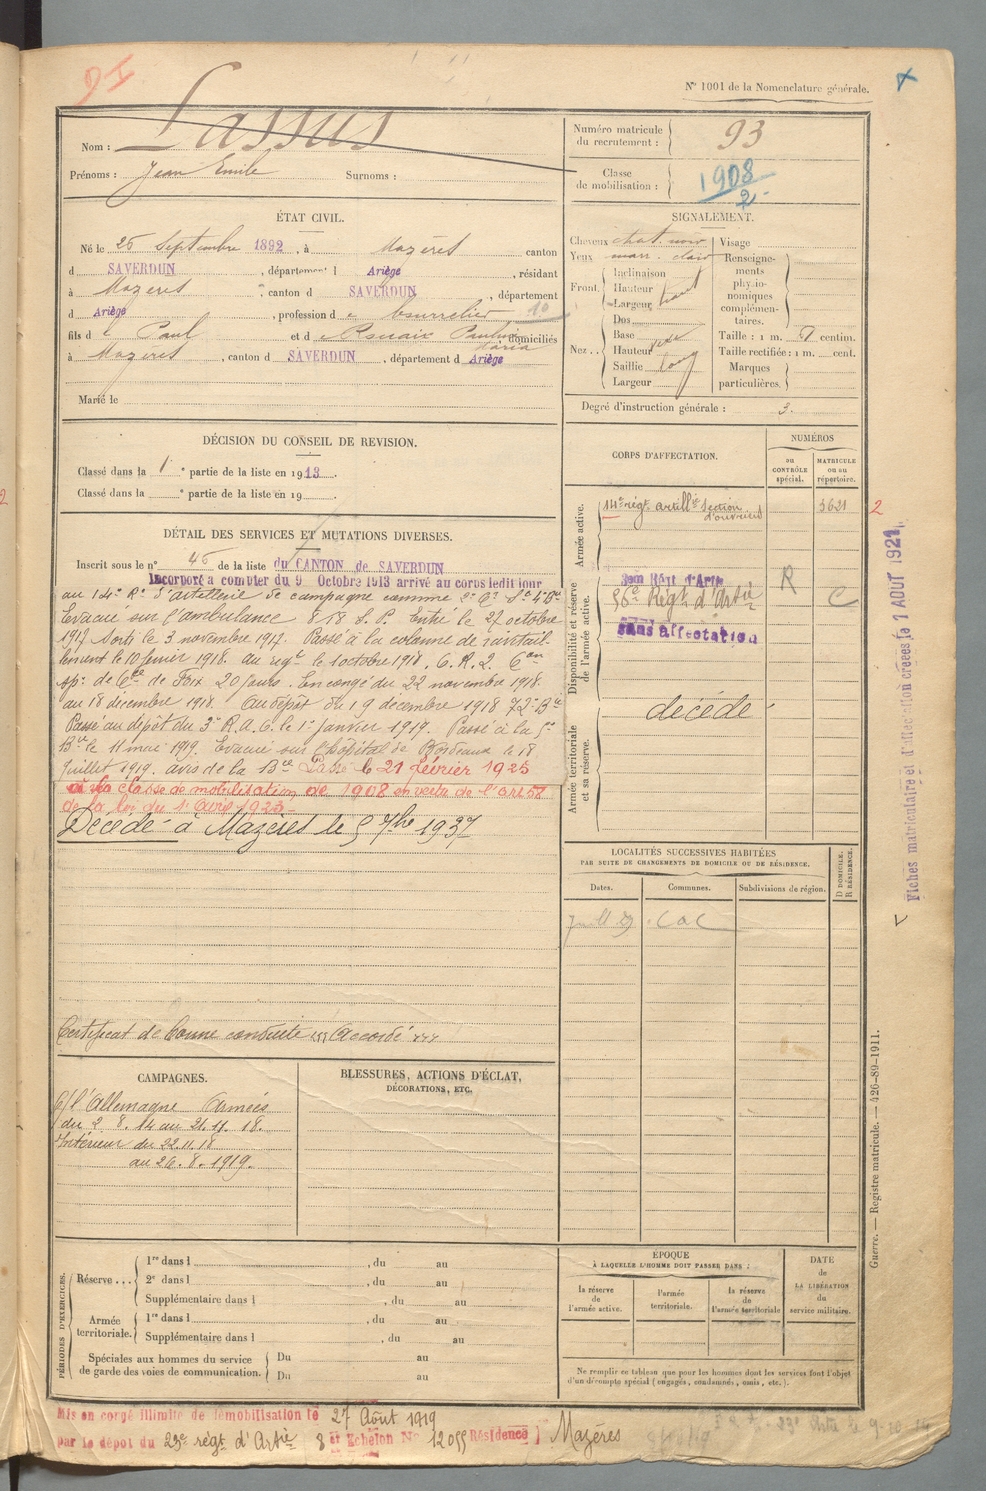 9I
N° 1001 de la Nomenclature générale.
Nom : Lassus
Prénoms : Jean Emile Surnoms :
Numéro matricule du recrutement : 93
Classe de mobilisation : 1908
2
ÉTAT CIVIL.
Né le 25 Septembre 1892, à Mazères canton
d SAVERDUN, département d Ariège, résidant
à Mazères, canton d SAVERDUN, département
d Ariège, profession d e bourrelier 10
fils d e Paul et d e Rouaix Pauline Maria domiciliés
à Mazères, canton d SAVERDUN, département d Ariège
Marié le
SIGNALEMENT.
Cheveux chat. noir
Yeux marr. clair
Front. Inclinaison
Hauteur
Largeur haut
Nez.. Dos
Base
Hauteur
Saillie long
Largeur
Visage
Renseignements physionomiques complémentaires.
Taille : 1 m. centim.
Taille rectifiée : 1 m. cent.
Marques particulières.
Degré d'instruction générale : 3.
DÉCISION DU CONSEIL DE REVISION.
Classé dans la 1 e partie de la liste en 1913.
Classé dans la e partie de la liste en 19
CORPS D'AFFECTATION.
NUMÉROS
au CONTRÔLE spécial.
MATRICULE ou au répertoire.
Armée active.
14e régt artillie Section d'ouvriers 3621
2
Disponibilité et réserve de l'armée active.
Régt d'Artie
56e Régt d'Artie R
sans affectation
Armée territoriale et sa réserve.
décédé
DÉTAIL DES SERVICES ET MUTATIONS DIVERSES.
Inscrit sous le n° 45 de la liste du CANTON de SAVERDUN
Incorporé à compter du 9 Octobre 1913 arrivé au corps ledit jour
au 14e Rt d'artillerie de campagne comme 2e
Evacué sur l'ambulance 8/18 S. P. Entré le 27 octobre
1917 Sorti le 3 novembre 1917. Passé à la colonne de ravitail-
lement le 10 février 1918. au régt le 1 octobre 1918. C. R. L.
de Foix 20 jours. En congé du 22 novembre 1918
au 18 décembre 1918. Au dépôt du 19 décembre 1918 72e Bie
Passé au dépôt du 3e R.A.C. le 1er janvier 1919. Passé à la
Bie le 11 mai 1919. Evacué sur l'hôpital de Bordeaux le 18
juillet 1919. avis de la Bie Passé le 21 février 1925
à la classe de mobilisation de 1908 en vertu de l'art 58
de la loi du 1 avril 1923
Décédé à Mazères le 5 7bre 1937
LOCALITÉS SUCCESSIVES HABITÉES
PAR SUITE DE CHANGEMENTS DE DOMICILE OU DE RÉSIDENCE.
Dates. Communes. Subdivisions de région. D DOMICILE. R RÉSIDENCE.
Certificat de bonne conduite Accordé
CAMPAGNES.
C/ l'Allemagne Armées
du 2. 8. 14 au 21. 11. 18.
Intérieur du 22.11.18
au 26. 8. 1919.
BLESSURES, ACTIONS D'ÉCLAT,
DÉCORATIONS, ETC.
PÉRIODES D'EXERCICES.
Réserve... 1re dans l , du au
2e dans l , du au
Supplémentaire dans l , du au
Armée territoriale. 1re dans l , du au
Supplémentaire dans l , du au
Spéciales aux hommes du service de garde des voies de communication. Du au
Du au
ÉPOQUE
À LAQUELLE L'HOMME DOIT PASSER DANS :
la réserve de l'armée active.
l'armée territoriale.
la réserve de l'armée territoriale
DATE de LA LIBÉRATION du service militaire.
Ne remplir ce tableau que pour les hommes dont les services font l'objet
d'un décompte spécial (engagés, condamnés, omis, etc.).
Mis en congé illimité de démobilisation le 27 Août 1919
par le dépôt du 23e régt d'Artie 8 e Echelon N° 12055 Résidence Mazères
Fiches matriculaire et d'affectation créées le 1 AOUT 1921
Guerre. — Registre matricule. — 426-89-1911.